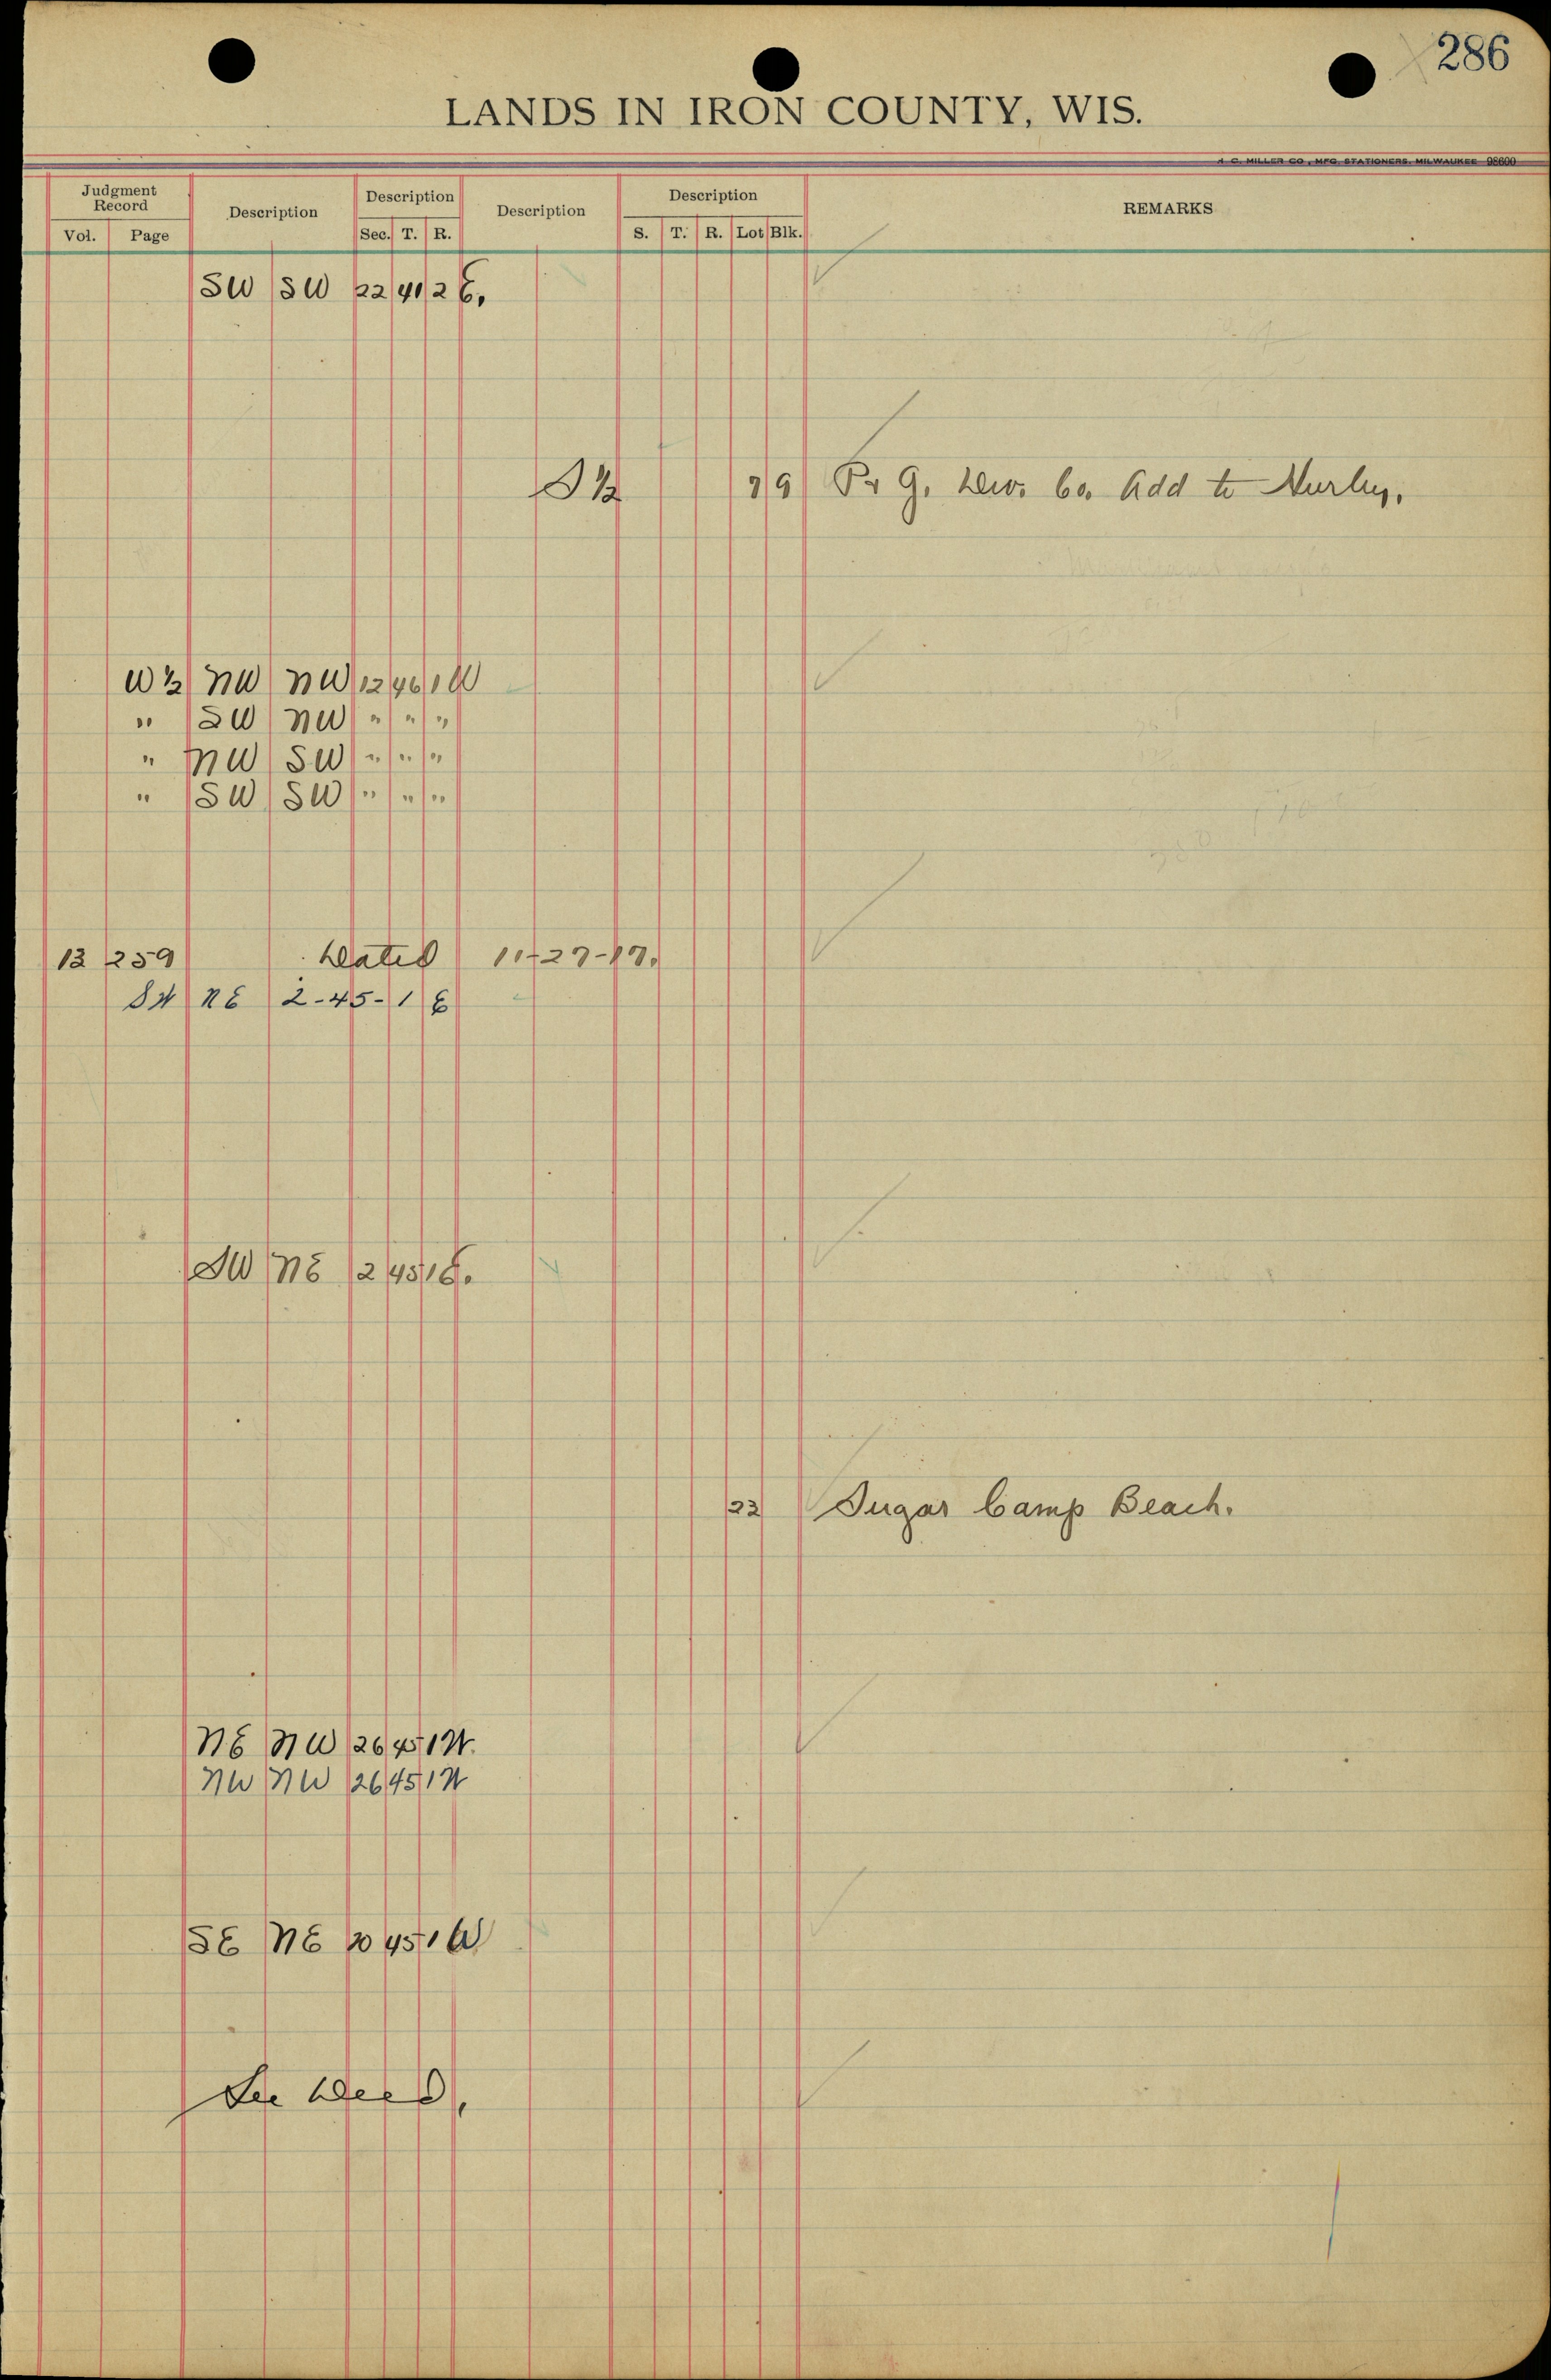 286
LANDS IN IRON COUNTY, WIS.
H. C. MILLER CO., MFG. STATIONERS, MILWAUKEE 98600
Judgment Record Description Description Description Description REMARKS
Vol. Page Sec. T. R. S. T. R. Lot Blk.
SW SW 22 41 2 E.
S ½ 7 9 P. & G. Dev. Co. Add to Hurley.
W ½ NW NW 12 46 1 W
" SW NW " " "
" NW SW " " "
" SW SW " " "
12 259 Dated 11-27-17.
SW NE 2-45-1 E
SW NE 2 45 1 E.
22 Sugar Camp Beach.
NE NW 26 45 1 W.
NW NW 26 45 1 W
SE NE 20 45 1 W
See Deed.